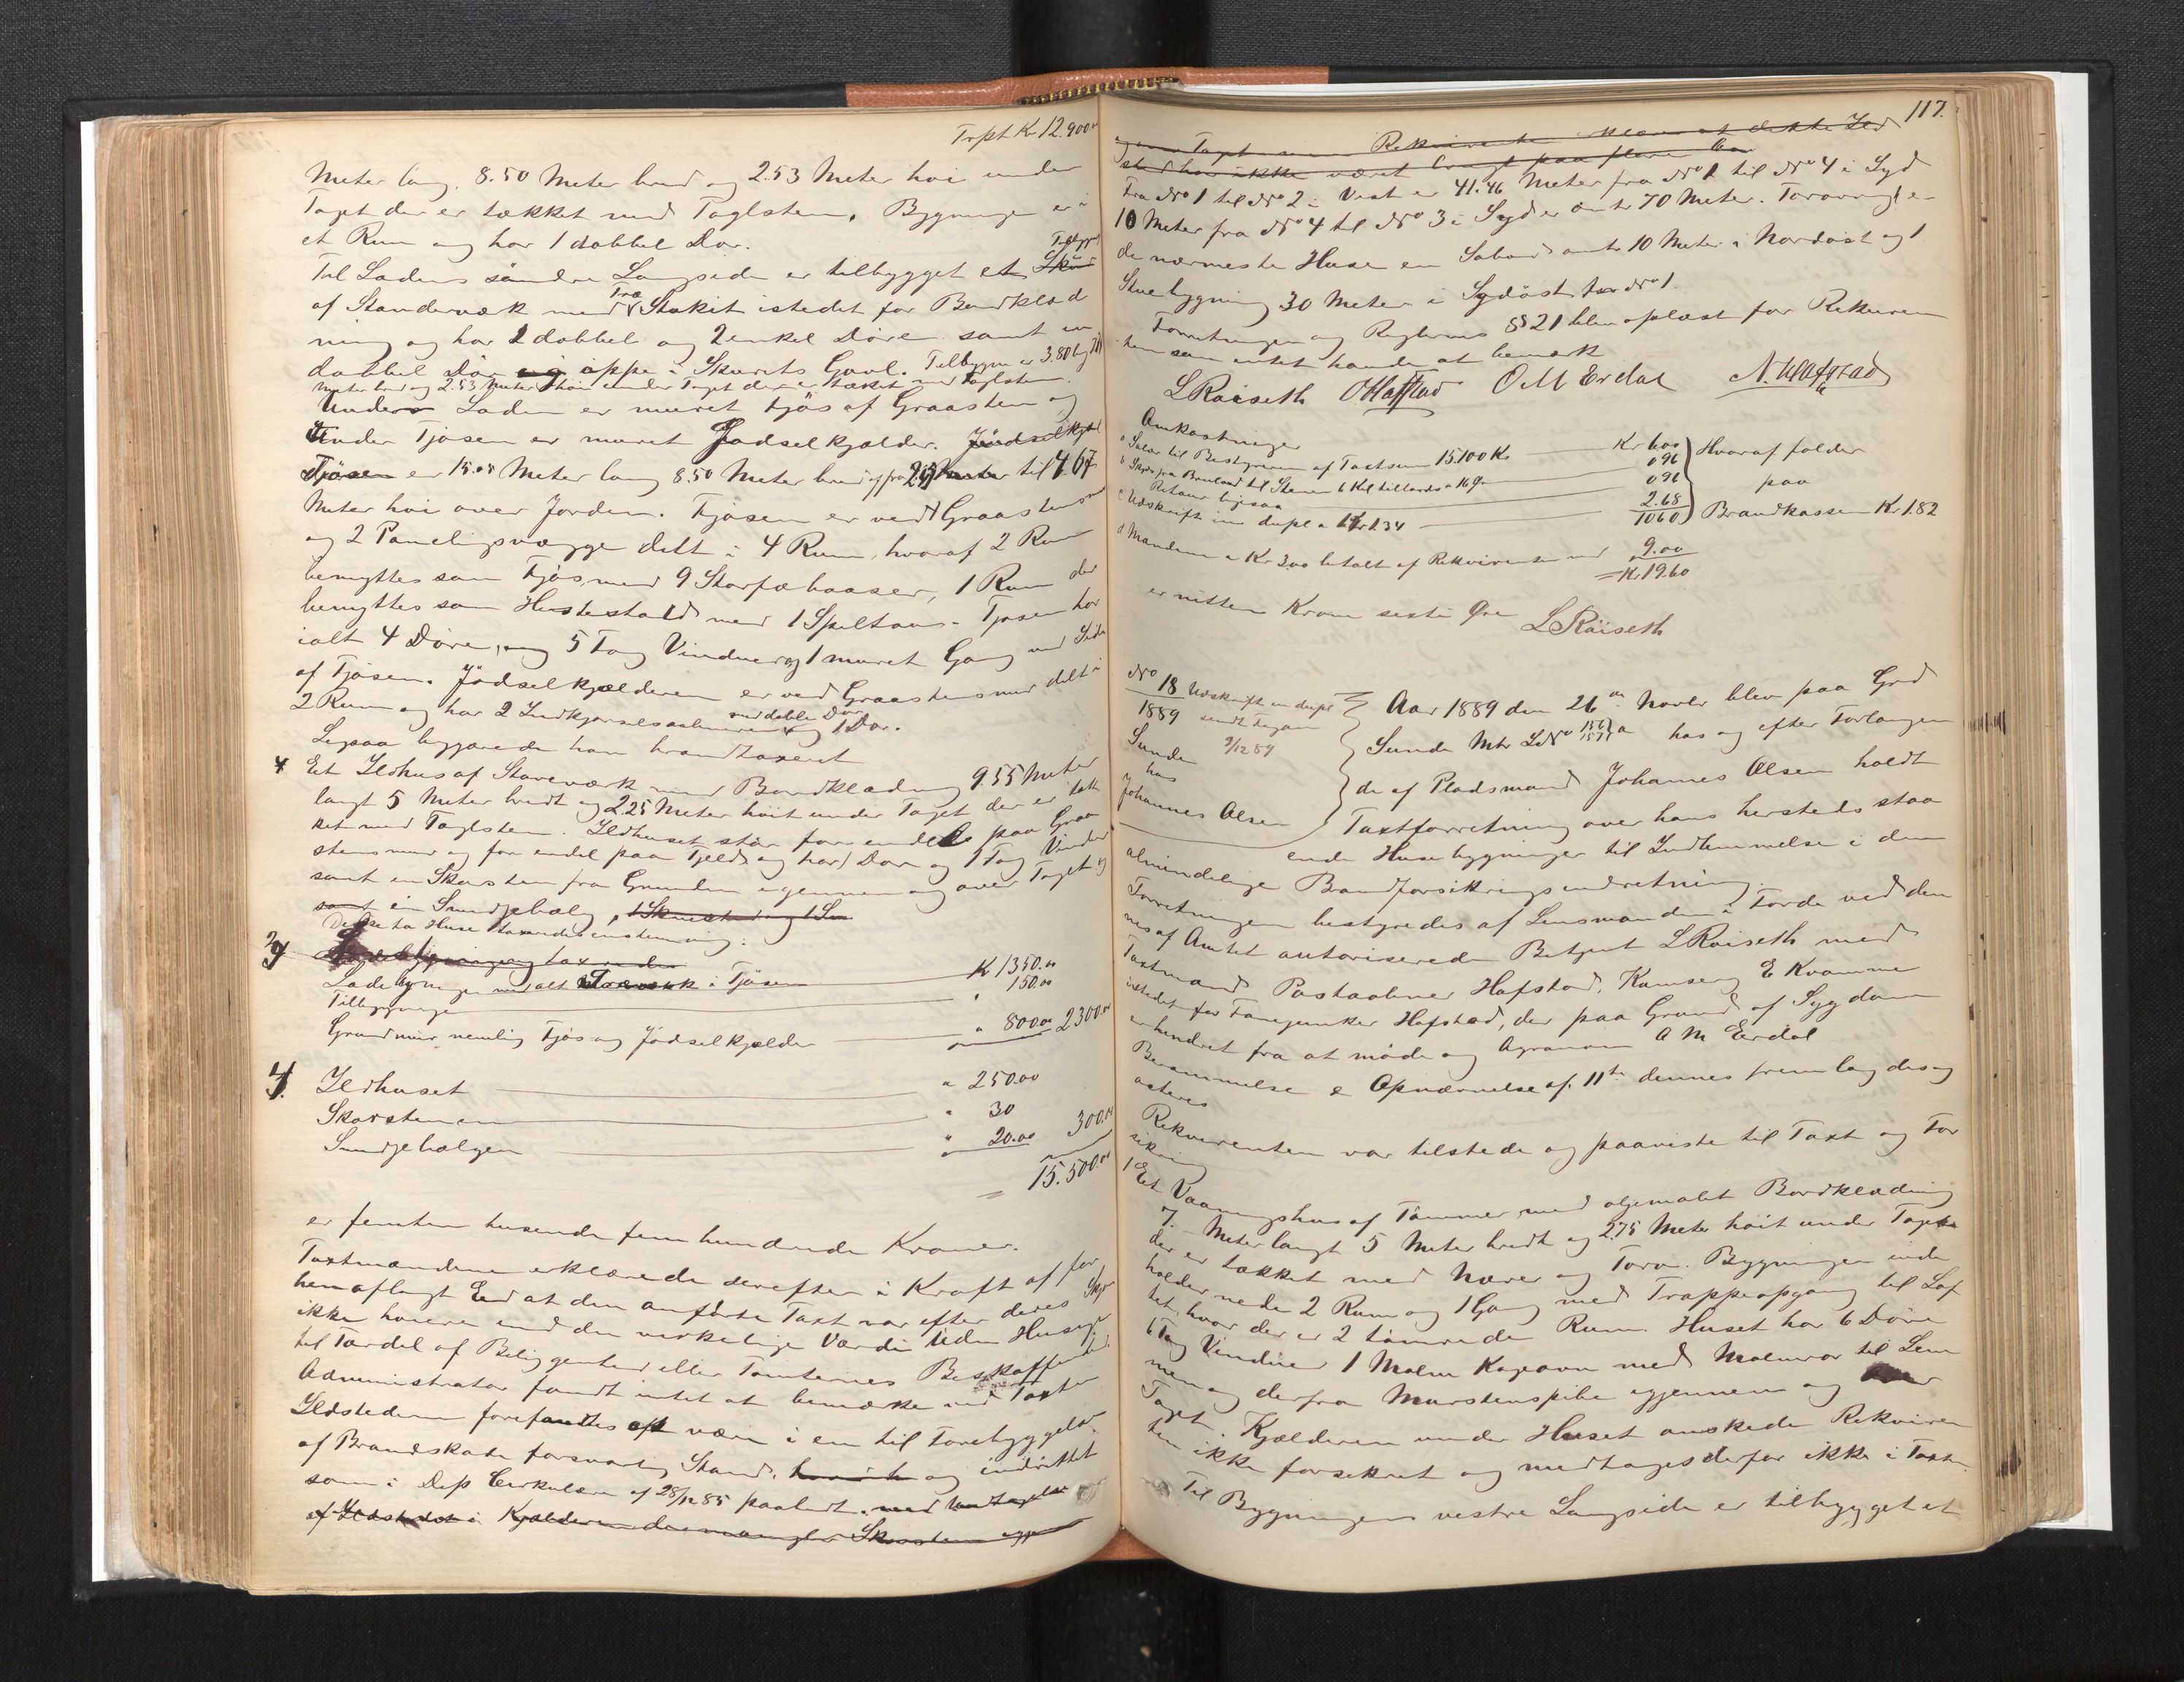 Trpt Kr 12.900.00
Meter lang, 8.50 Meter bred og 2.53 Meter høi under
Taget der er tækket med Taglsten. Bygningen er i
et Rum og har 1 dobbel Dør.
Til Ladens søndre Langside er tilbygget et Skur Tilbygg
af Standerværk med Træ Stakit istedet for Bordklæd
ning og har 2 dobbel og 2 enkel Døre samt en
dobbel Dør oppe i Skurets Gavl. Tilbyggn er 3.80 lg
Meter bred og 2.53 Meter høi under Taget der er tækket med Taglsten.
Under Laden er muret Fjøs af Graasten og
Under Fjøsen er muret Jødselkjælder. Jødselkjæl
Fjøsen er 15.05 Meter lang 8.50 Meter bred og fra til 4.67
Meter høi over Jorden. Fjøsen er ved Graastensmur
og 2 Panelingsvægge delt i 4 Rum, hvoraf 2 Rum
benyttes som Fjøs, med 9 Storfæbaaser, 1 Rum der
benyttes som Hestestald med 1 Spiltaug. Fjøsen har
ialt 4 Døre, og 5 Fag Vinduer og 1 muret Gang ved Side
af Fjøsen. Jødselkjælderen er ved Graastensmur delt i
2 Rum og har 2 Indkjørselsaabninger med doble Døre og 1 Dør.
Ligsaa begjærede han brandtaxeret
4 Et Ildhus af Staveværk med Bordklædning 9.55 Meter
langt 5 Meter bredt og 2.25 Meter høit under Taget der er tæk
ket med Taglsten. Ildhuset står for endel paa Graa
stensmur og for endel paa Fjeld og har 1 Dør og 1 Fag Vindue
samt en Skorsten fra Grunden igjennem og over Taget og
samt en Smidjebælg, 1 Skruestik og 1
Disse to Huse taxeredes enstemmig:
3)
Ladebygningen med alt Træverk i Fjøsen K 1350.00
Tilbygninger " 150.00
Grundmur nemlig Fjøs og Jødselkjælder " 800.00 2300.00
4). Ildhuset " 250.00
Skorstenen " 30
Smidjebælgen " 20.00 300.00
= 15.500.00
er femten tusende fem hundrede Kroner.
Taxtmændene erklærede derefter i Kraft af for
hen aflagt Eed at den anførte Taxt var efter deres Skjøn
ikke høiere end den virkelige Værdi uden Hensyn
til Fordel af Beliggenhed eller Tomternes Beskaffenhed
Administrator fandt intet at bemærke ved Taxten
Ildstederne forefandtes at være i en til Forebyggelse
af Brandskade forsvarlig Stand, og indrettet
som i Dep Cirkulære af 28/12 85 paabudt. med Undtagelse
af Ildstedet i Kjælderen der mangler Skorsten igj
117.
og over Taget men Rekvirenten at dette Ild
sted har ikke været brugt paa flere Aar
Fra No 1 til No 2 i Vest er 41.46 Meter fra No 1 til No 4 i Syd
10 Meter fra No 4 til No 3 i Syd er omtr 70 Meter. Forøvrigt er
de nærmeste Huse en omtr 10 Meter i Nordøst og 1
Stuebygning 30 Meter i Sydøst for No 1.
Forretningen og Reglernes § 21 blev oplæst for Rekviren
ten som intet havde at bemærk
L Røiseth O Hafstad O M Erdal N. Hafstad
Omkostninger
a Salær til Bestyreren af Taxtsum 15.100 Kr Kr 6.00
b Skyds fra Bruland til Stenen 6 Kil tillands a 16 Ø 0.96
Retour ligesaa 0.96
c Udskrift inn dupl a Kr 1.34 2.68
10.60
Hvoraf falder
paa
Brandkassen Kr 1.82
d Mændene a Kr 3.00 betalt af Rekvirenten med 9.00
= Kr 19.60
er nitten Kroner seksti Øre L Røiseth
No 18 Udskrift in dupl
1889 sendt Fogden
9/12 89
Sunde
hos
Johannes Olsen
Aar 1889 den 26de Novbr blev paa Grd
Sunde Mtr LNo 156/157 a hos og efter Forlangen
de af Pladsmand Johannes Olsen holdt
Taxtforretning over hans hersteds staa
ende Husebygninger til Indlemmelse i den
almindelige Brandforsikringsindretning.
Forretningen bestyredes af Lensmanden i Førde ved den
nes af Amtet autoriserede Betjent L Røiseth med
Taxtmænd Postaabner Hafstad, Kamserg E Kvamme
istedet for Fanejunker Hafstad, der paa Grund af Sygdom
er hindret fra at møde og Agronom O M Erdal
Berammelse & Opnævnelse af 11te dennes fremlagdes og
acteres
Rekvirenten var tilstede og paaviste til Taxt og For
sikring
1 Et Vaaningshus af Tømmer med oljemalet Bordklædning
7. – Meter langt 5 Meter bredt og 2.75 Meter høit under Taget
der er tækket med Næver og Torv. Bygningen inde
holder nede 2 Rum og 1 Gang med Trappeopgang til Lof
tet, hvor der er 2 tømrede Rum. Huset har 6 Døre
6 Fag Vinduer 1 Malm Kogeovn med Malmrør til Lem
men og derfra Murstenspibe igjennem og over
Taget. Kjælderen under Huset ønskede Rekviren
ten ikke forsikret og medtages derfor ikke i Taxten
Til Bygningens vestre Langside er tilbygget et